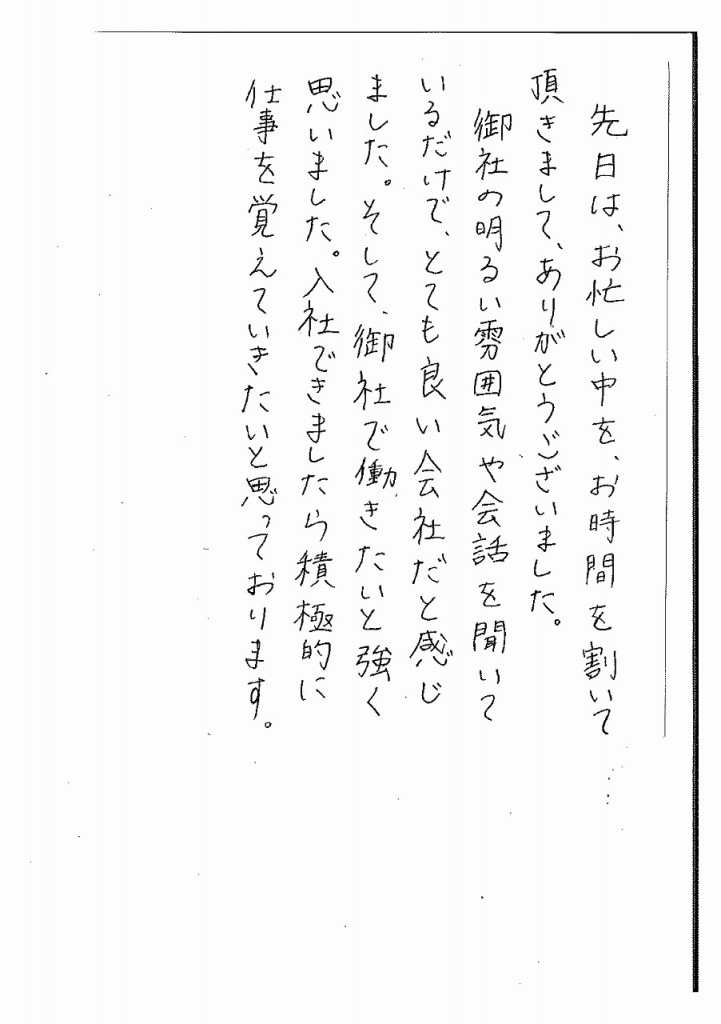 先日は、お忙しい中を、お時間を割いて
頂きまして、ありがとうございました。
御社の明るい雰囲気や会話を聞いて
いるだけで、とても良い会社だと感じ
ました。そして、御社で働きたいと強く
思いました。入社できましたら積極的に
仕事を覚えていきたいと思っております。